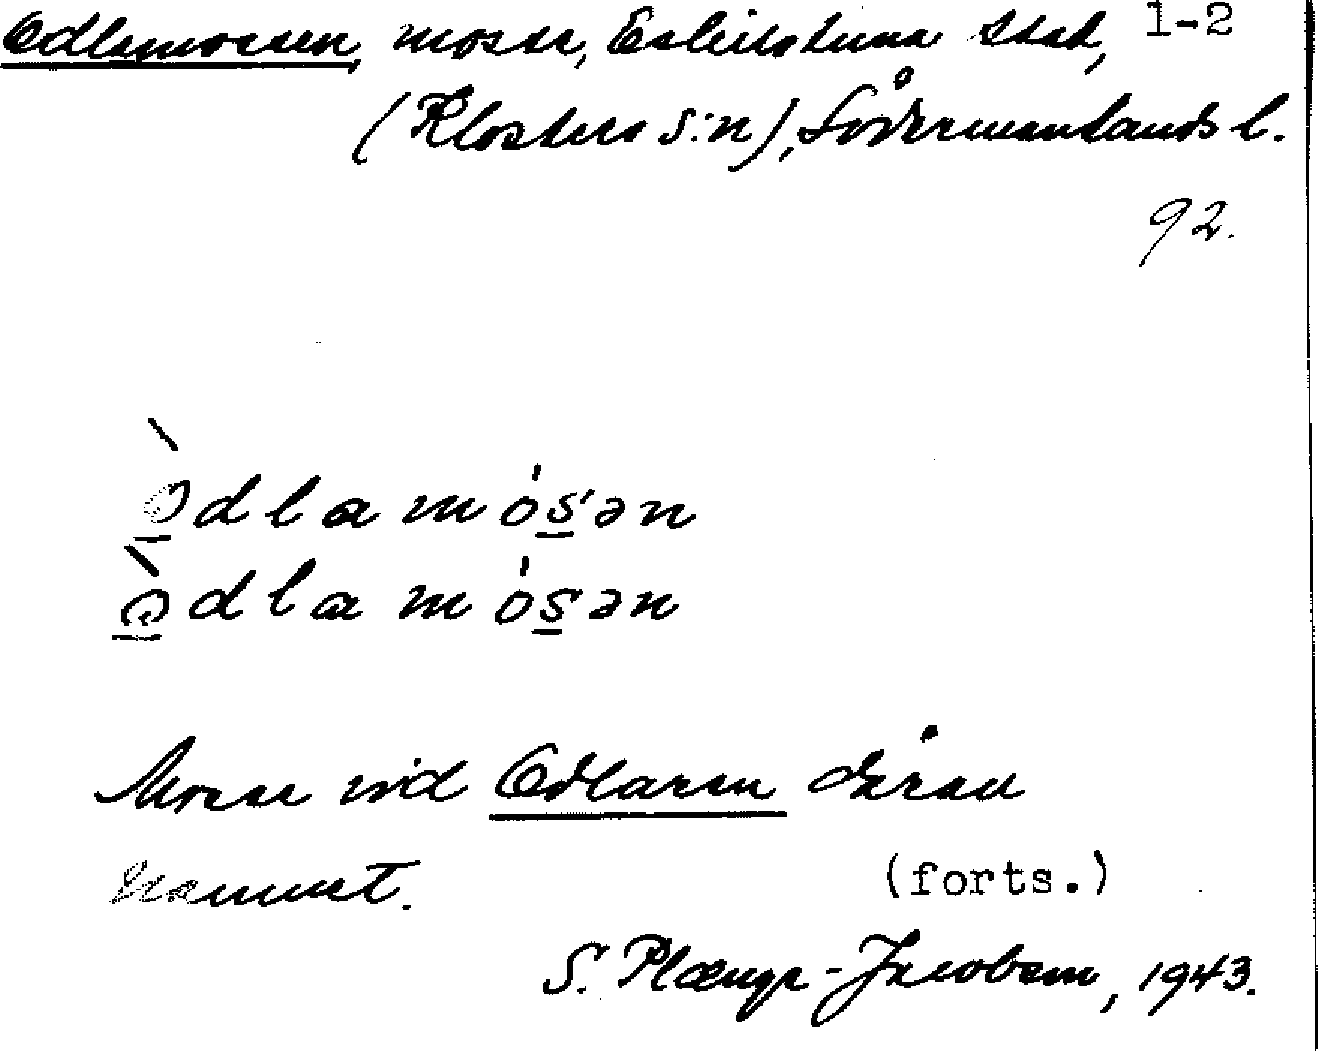 Odlamossen, mosse, Eskilstuna stad, 1-2
(Klosters s:n), Södermanlands l.
92.
ɔ̀dlamós'ən
ɔ̀dlamósən
Mosse vid Odlaren därav
namnet. (forts.)
S. Plænge-Jacobson, 1943.